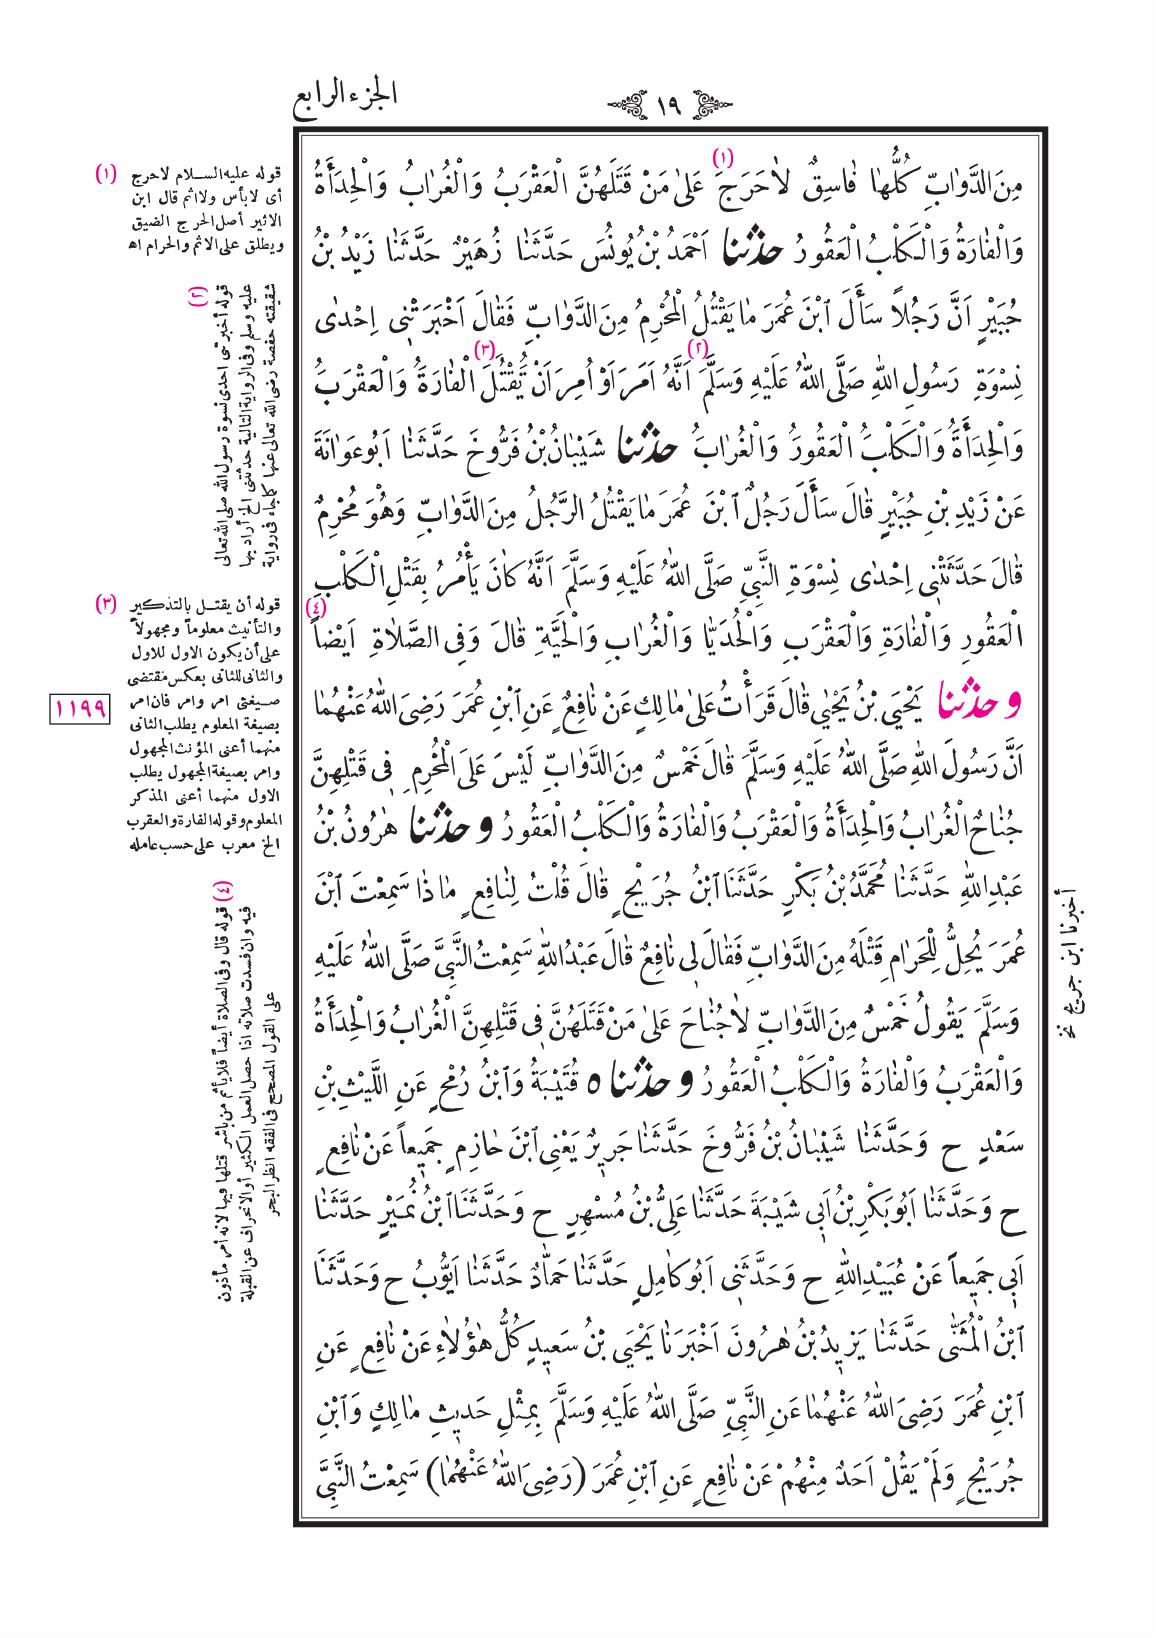 ١٩
الجزء الرابع
مِنَ الدَّوَابِّ كُلُّهَا فَاسِقٌ لَا حَرَجَ (١) عَلَى مَنْ قَتَلَهُنَّ الْعَقْرَبُ وَالْغُرَابُ وَالْحِدَأَةُ
وَالْفَارَةُ وَالْكَلْبُ الْعَقُورُ حدثنا أَحْمَدُ بْنُ يُونُسَ حَدَّثَنَا زُهَيْرٌ حَدَّثَنَا زَيْدُ بْنُ
جُبَيْرٍ أَنَّ رَجُلاً سَأَلَ ابْنَ عُمَرَ مَا يَقْتُلُ الْمُحْرِمُ مِنَ الدَّوَابِّ فَقَالَ أَخْبَرَتْنِي إِحْدَى
نِسْوَةِ رَسُولِ اللهِ صَلَّى اللهُ عَلَيْهِ وَسَلَّمَ (٢) أَنَّهُ أَمَرَ أَوْ أُمِرَ أَنْ يُقْتَلَ (٣) الْفَارَةُ وَالْعَقْرَبُ
وَالْحِدَأَةُ وَالْكَلْبُ الْعَقُورُ وَالْغُرَابُ حدثنا شَيْبَانُ بْنُ فَرُّوخَ حَدَّثَنَا أَبُو عَوَانَةَ
عَنْ زَيْدِ بْنِ جُبَيْرٍ قَالَ سَأَلَ رَجُلٌ ابْنَ عُمَرَ مَا يَقْتُلُ الرَّجُلُ مِنَ الدَّوَابِّ وَهُوَ مُحْرِمٌ
قَالَ حَدَّثَتْنِي إِحْدَى نِسْوَةِ النَّبِيِّ صَلَّى اللهُ عَلَيْهِ وَسَلَّمَ أَنَّهُ كَانَ يَأْمُرُ بِقَتْلِ الْكَلْبِ
الْعَقُورِ وَالْفَارَةِ وَالْعَقْرَبِ وَالْحُدَيَّا وَالْغُرَابِ وَالْحَيَّةِ قَالَ وَفِي الصَّلَاةِ أَيْضاً (٤)
و حدثنا يَحْيَى بْنُ يَحْيَى قَالَ قَرَأْتُ عَلَى مَالِكٍ عَنْ نَافِعٍ عَنِ ابْنِ عُمَرَ رَضِيَ اللهُ عَنْهُمَا
أَنَّ رَسُولَ اللهِ صَلَّى اللهُ عَلَيْهِ وَسَلَّمَ قَالَ خَمْسٌ مِنَ الدَّوَابِّ لَيْسَ عَلَى الْمُحْرِمِ فِي قَتْلِهِنَّ
جُنَاحٌ الْغُرَابُ وَالْحِدَأَةُ وَالْعَقْرَبُ وَالْفَارَةُ وَالْكَلْبُ الْعَقُورُ و حدثنا هَرُونُ بْنُ
عَبْدِ اللهِ حَدَّثَنَا مُحَمَّدُ بْنُ بَكْرٍ حَدَّثَنَا ابْنُ جُرَيْجٍ قَالَ قُلْتُ لِنَافِعٍ مَاذَا سَمِعْتَ ابْنَ
عُمَرَ يُحِلُّ لِلْحَرَامِ قَتْلَهُ مِنَ الدَّوَابِّ فَقَالَ لِي نَافِعٌ قَالَ عَبْدُ اللهِ سَمِعْتُ النَّبِيَّ صَلَّى اللهُ عَلَيْهِ
وَسَلَّمَ يَقُولُ خَمْسٌ مِنَ الدَّوَابِّ لَا جُنَاحَ عَلَى مَنْ قَتَلَهُنَّ فِي قَتْلِهِنَّ الْغُرَابُ وَالْحِدَأَةُ
وَالْعَقْرَبُ وَالْفَارَةُ وَالْكَلْبُ الْعَقُورُ و حدثنا ه قُتَيْبَةُ وَابْنُ رُمْحٍ عَنِ اللَّيْثِ بْنِ
سَعْدٍ ح وَحَدَّثَنَا شَيْبَانُ بْنُ فَرُّوخَ حَدَّثَنَا جَرِيرٌ يَعْنِي ابْنَ حَازِمٍ جَمِيعاً عَنْ نَافِعٍ
ح وَحَدَّثَنَا أَبُو بَكْرِ بْنُ أَبِي شَيْبَةَ حَدَّثَنَا عَلِيُّ بْنُ مُسْهِرٍ ح وَحَدَّثَنَا ابْنُ نُمَيْرٍ حَدَّثَنَا
أَبِي جَمِيعاً عَنْ عُبَيْدِ اللهِ ح وَحَدَّثَنِي أَبُو كَامِلٍ حَدَّثَنَا حَمَّادٌ حَدَّثَنَا أَيُّوبُ ح وَحَدَّثَنَا
ابْنُ الْمُثَنَّى حَدَّثَنَا يَزِيدُ بْنُ هَرُونَ أَخْبَرَنَا يَحْيَى بْنُ سَعِيدٍ كُلُّ هَؤُلَاءِ عَنْ نَافِعٍ عَنِ
ابْنِ عُمَرَ رَضِيَ اللهُ عَنْهُمَا عَنِ النَّبِيِّ صَلَّى اللهُ عَلَيْهِ وَسَلَّمَ بِمِثْلِ حَدِيثِ مَالِكٍ وَابْنِ
جُرَيْجٍ وَلَمْ يَقُلْ أَحَدٌ مِنْهُمْ عَنْ نَافِعٍ عَنِ ابْنِ عُمَرَ (رَضِيَ اللهُ عَنْهُمَا) سَمِعْتُ النَّبِيَّ
أخبرنا ابن جريج نخ
(١) قوله عليه السلام لا حرج
أى لا بأس ولا اثم قال ابن
الاثير أصل الحرج الضيق
ويطلق على الاثم والحرام اه
(٢) قوله أخبرتنى احدى نسوة رسول الله صلى الله تعالى
عليه وسلم وفى الرواية التالية حدثتنى الخ أراد بها
شقيقته حفصة رضى الله تعالى عنها كما جاء فى رواية
(٣) قوله أن يقتل بالتذكير
والتأنيث معلوماً ومجهولاً
على أن يكون الاول للاول
والثانى للثانى بعكس مقتضى
صيغتى امر وامر فان امر
بصيغة المعلوم يطلب الثانى
منهما أعنى المؤنث المجهول
وامر بصيغة المجهول يطلب
الاول منهما أعنى المذكر
المعلوم وقوله الفارة والعقرب
الخ معرب على حسب عامله
١١٩٩
(٤) قوله قال وفى الصلاة أيضاً فلا يأثم من باشر قتلها فيها لانه أمر مأذون
فيه وان فسدت صلاته اذا حصل العمل الكثير أو الانحراف عن القبلة
على القول المصحح فى الفقه انظر البحر